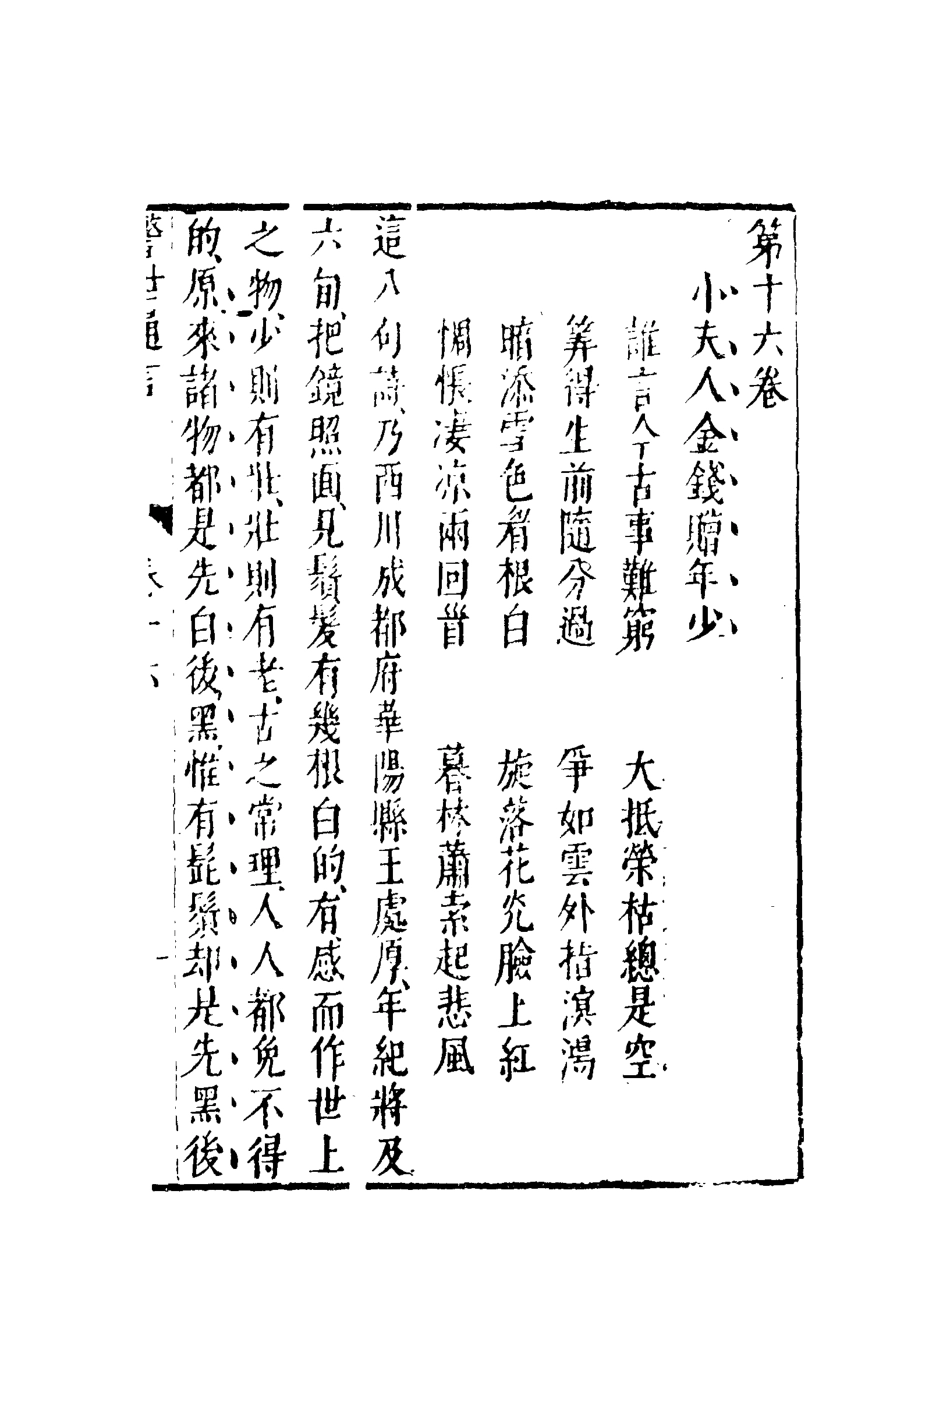 第十六卷
小夫人金錢贈年少
誰言今古事難窮　大抵榮枯總是空
筭得生前隨分過　爭如雲外指溟鴻
暗添雪色眉根白　旋落花光臉上紅
惆悵凄凉兩回首　暮林蕭索起悲風
這八句詩、乃西川成都府華陽縣王處厚、年紀將及
六旬、把鏡照面、見鬚髮有幾根白的、有感而作世上
之物、少則有壯、壯則有老、古之常理、人人都免不得
的、原來諸物都是先白後黑、惟有髭鬚却是先黑後
警世通言　卷十六　一